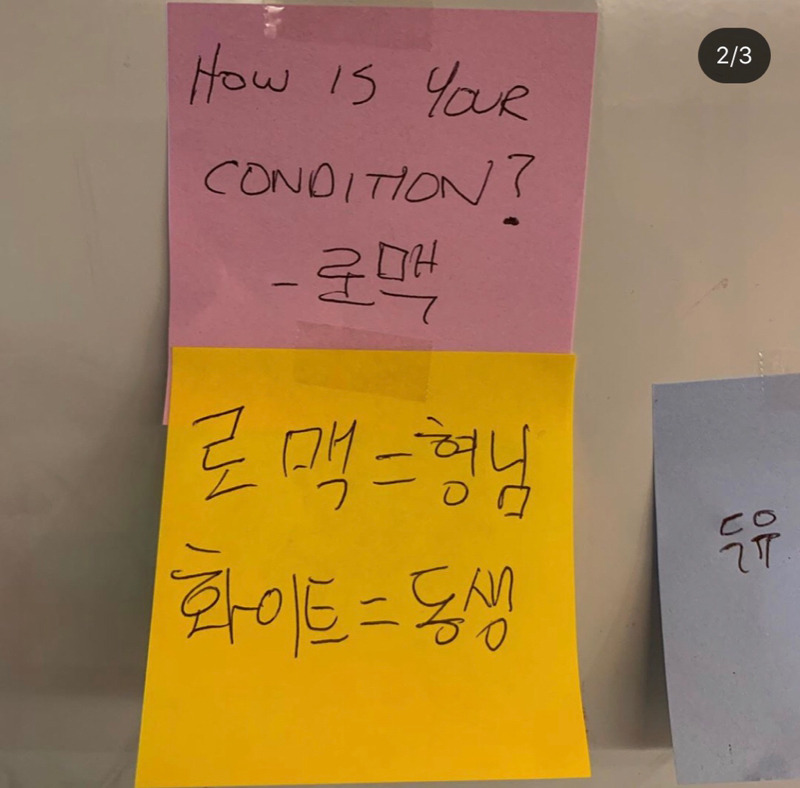 2/3
HOW IS YOUR
CONDITION?
- 로맥
로맥 = 형님
화이트 = 동생